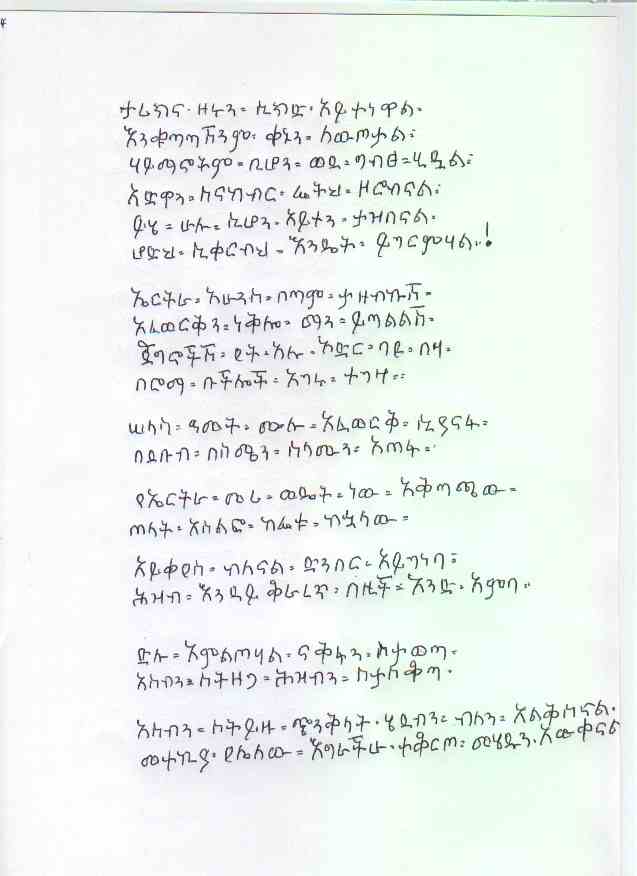 ታሪክና ዘሩን ሲክድ አይተነዋል።
እንቁጣጣሽንም፡ ቀኑን፡ ለውጦታል፡
ሃይማኖትም ቢሆን፡ ወደ፡ ግብፅ፡ ሂዷል፡
አድዋን፡ ስናከብር፡ ሬትህ፡ ዘርግፍናል፡
ይሄ፡ ሁሉ፡ ሲሆን፡ አይተን፡ ታዝበናል፡
ሆድህ፡ ሲቀርብህ፡ እንዴት፡ ይገርምሃል፡!
ኤርትራ፡ እሁንስ፡ በጣም፡ ታዘብኩሽ፡
አፈወርቅን፡ ነቅሎ፡ ማን፡ ይጣልልሽ፡
ጀግኖችሽ፡ የት፡ አሉ፡ አድር፡ ባዩ፡ በዛ፡
በሮማ፡ ቡችሎች፡ አገሬ፡ ተገዛ፡፡
ሠላሳ፡ ዓመት፡ ሙሉ፡ አፈወርቅ፡ ሲያናፋ፡
በደቡብ፡ በሰሜን፡ ሰላሙን፡ አጠፋ፡
የኤርትራ፡ መሪ፡ ወዴት፡ ነው፡ አቅጣጫው፡
ጠላት፡ አስልፎ፡ ከፊቱ፡ ከኋላው፡
አይቀየስ፡ ክለናል፡ ድንበር፡ አይገነባ፡
ሕዝብ፡ እንዳይ ቅራረኝ፡ በዚች፡ እንድ፡ እምባ፡
ድሉ፡ አምልጦሃል፡ ናቅፋን፡ ስታወጣ፡
አሰብን፡ ስትዘጋ፡ ሕዝብን፡ ስታስቅጣ፡
አሰብን፡ ስትይዙ፡ ጭንቅላት፡ ሄደብን፡ ብለን፡ አልቅሰናል፡
መተኪያ፡ የሌለው፡ እግራችሁ፡ ተቆርጦ፡ መሄዱን፡ አውቀናል